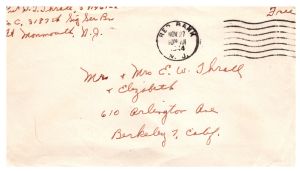 W. T. Thrall
Co C, 3187th Sig Ser Bn
Ft Monmouth, N. J.
Free
RED BANK
NOV 27
1944
N. J.
Mr & Mrs E. W. Thrall
& Elizabeth
610 Arlington Ave
Berkeley 7, Calif.